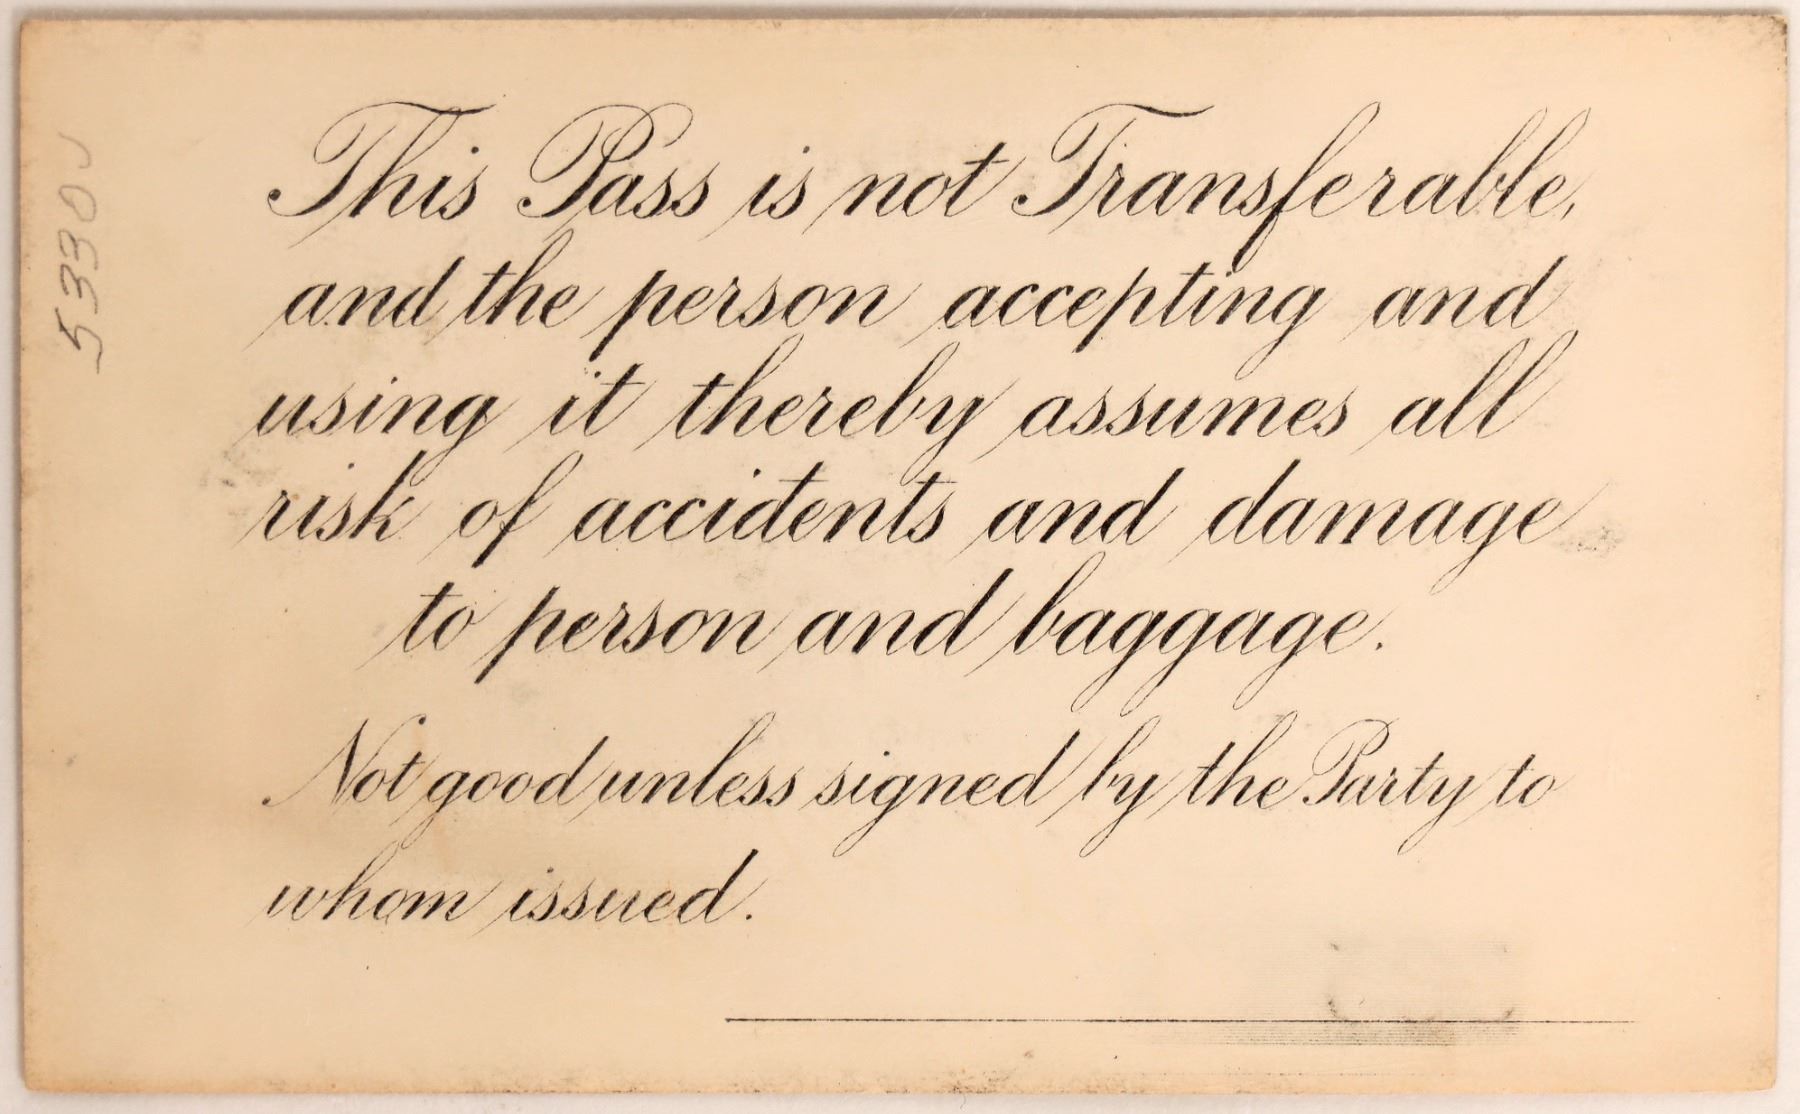 This Pass is not Transferable,
and the person accepting and
using it thereby assumes all
risk of accidents and damage
to person and baggage.
Not good unless signed by the Party to
whom issued.
5330